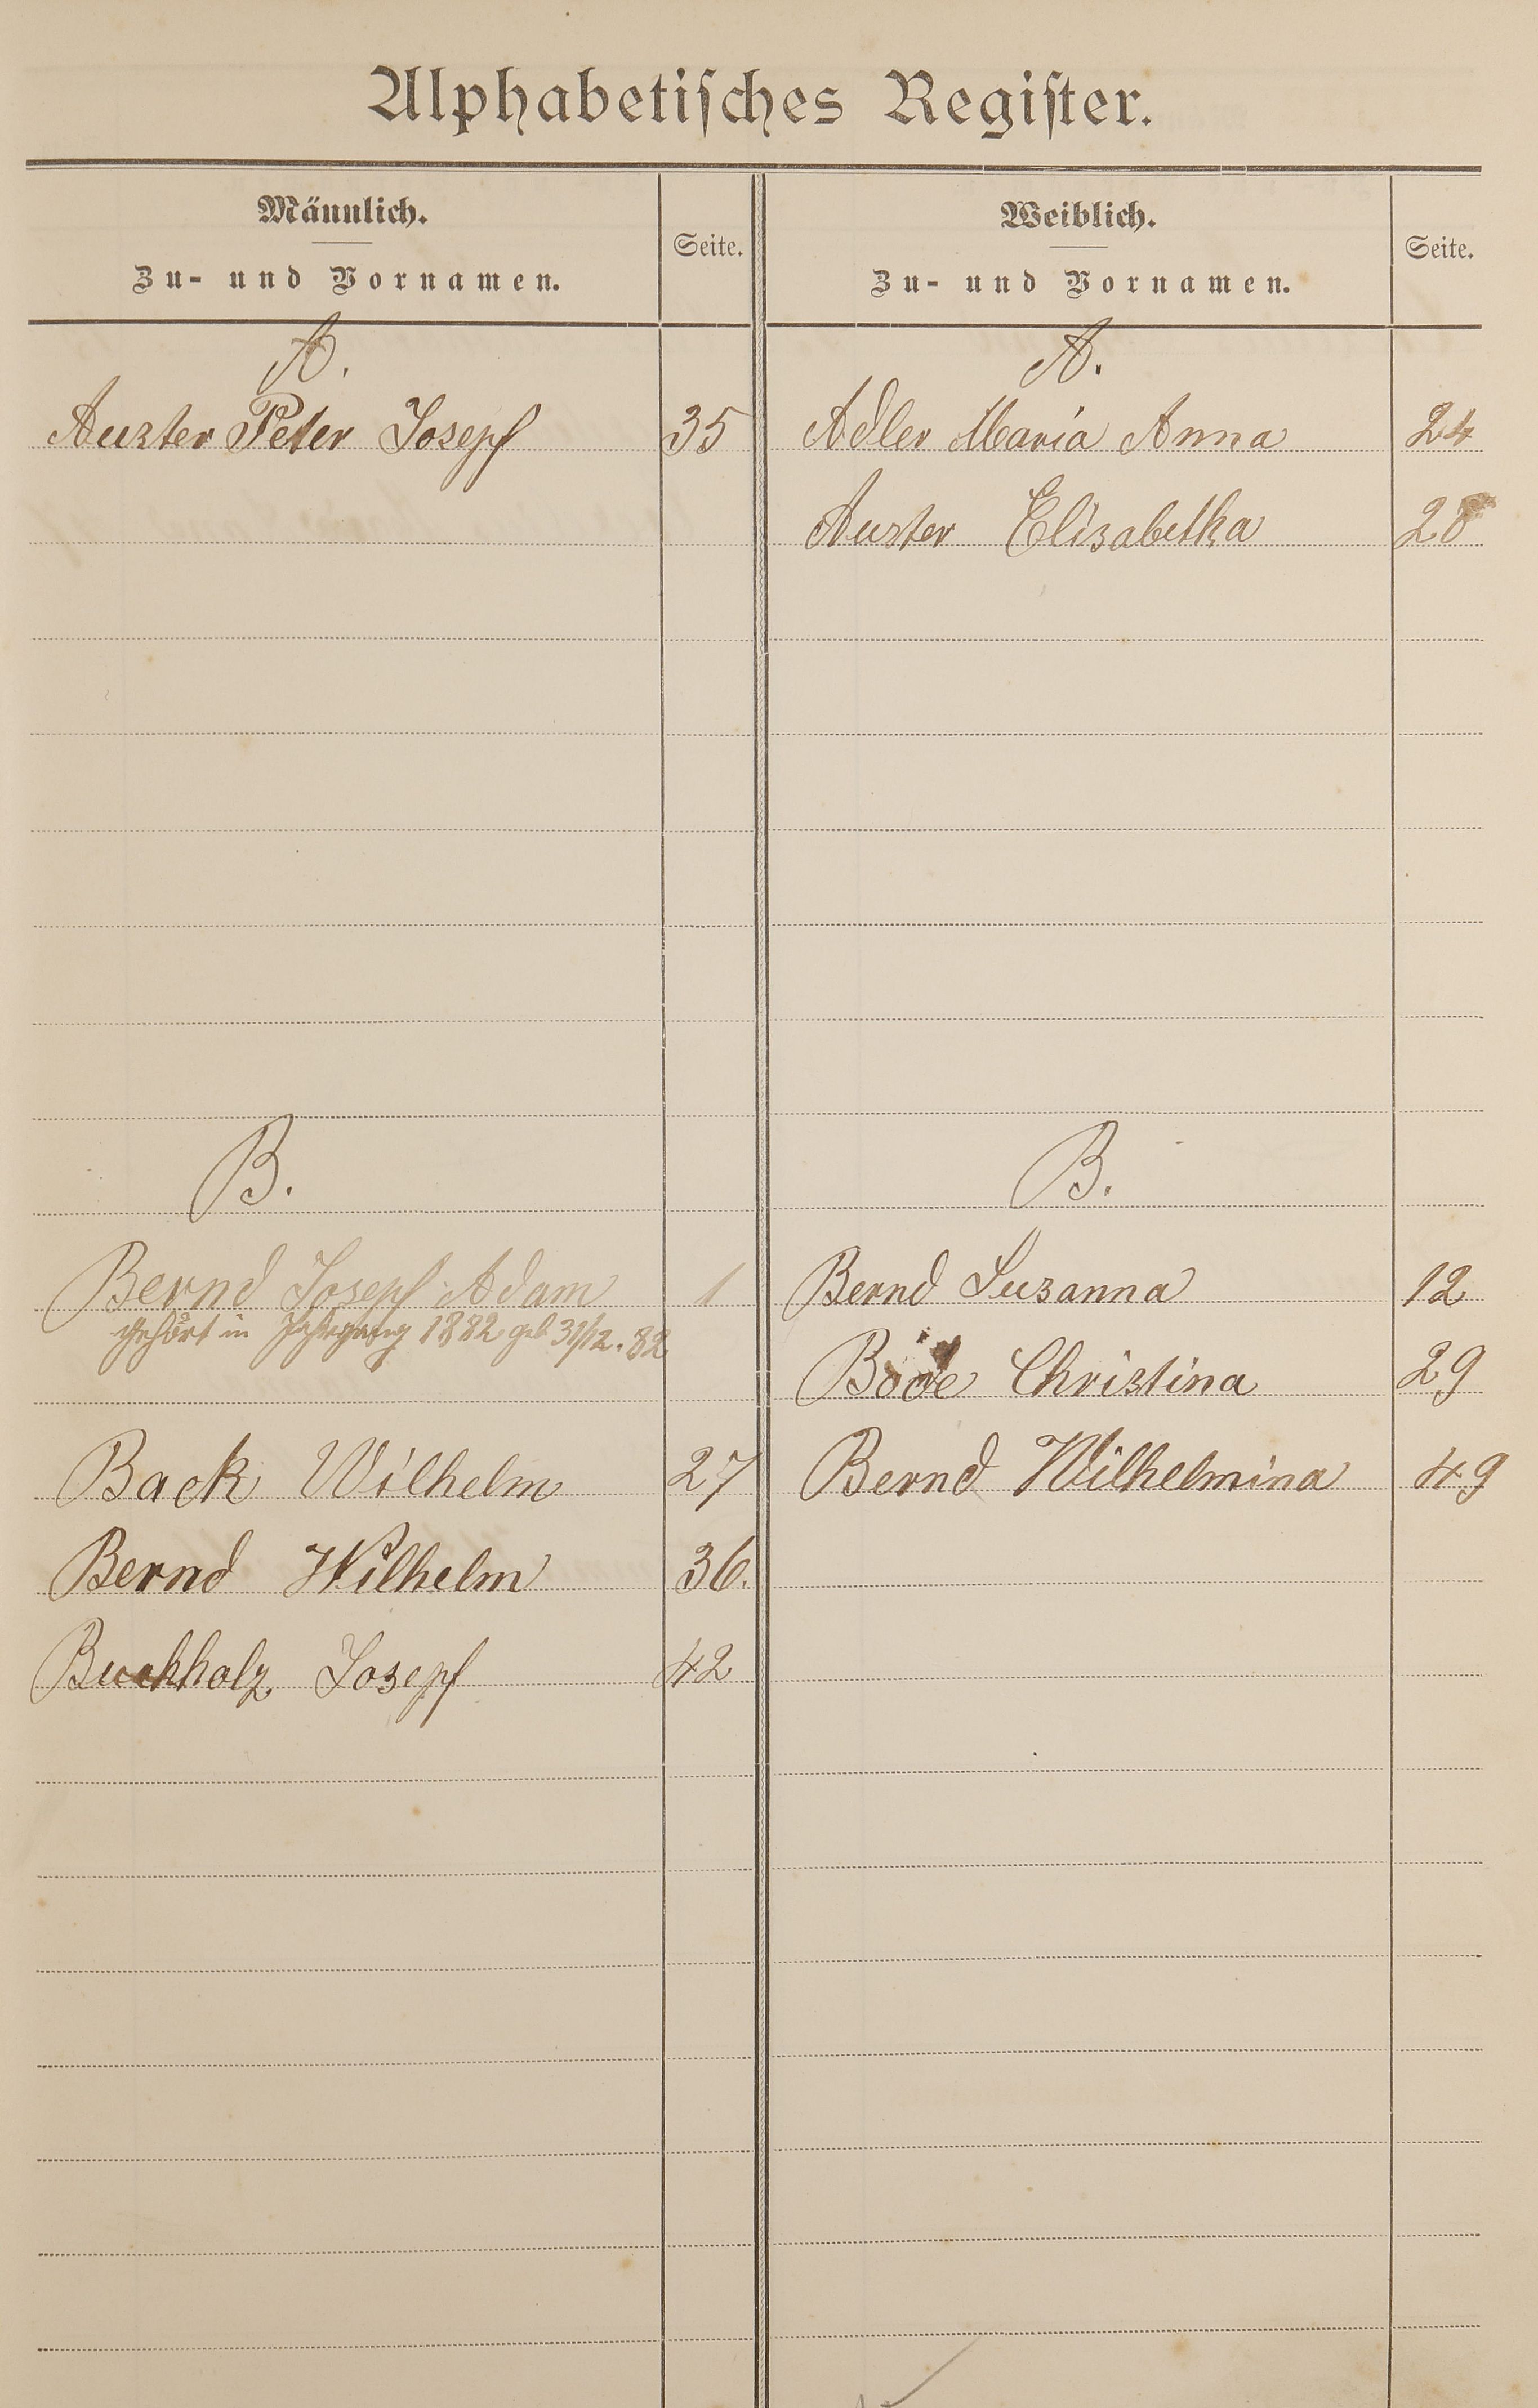 Alphabetisches Register.
Männlich.
Zu- und Vornamen.
Seite.
Weiblich.
Zu- und Vornamen.
Seite.
A.
A.
Auster Peter Josepf 35
Adler Maria Anna 24
Auster Elisabetha 28
B.
B.
Bernd Josepf Adam 1
gehört in Jahrgang 1882 geb 31/12.82
Bernd Susanna 12
Christina 29
Back Wilhelm 27
Bernd Wilhelmina 49
Bernd Wilhelm 36.
Buchholz Josepf 42